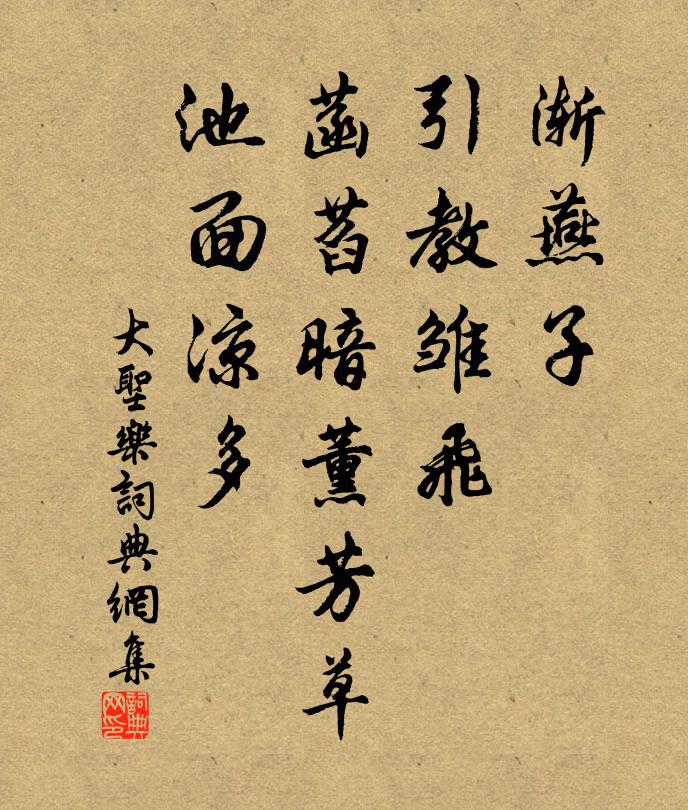 渐燕子
引教雏飛
菡萏暗薰芳草
池面凉多
大聖樂詞典網集
詞典网印